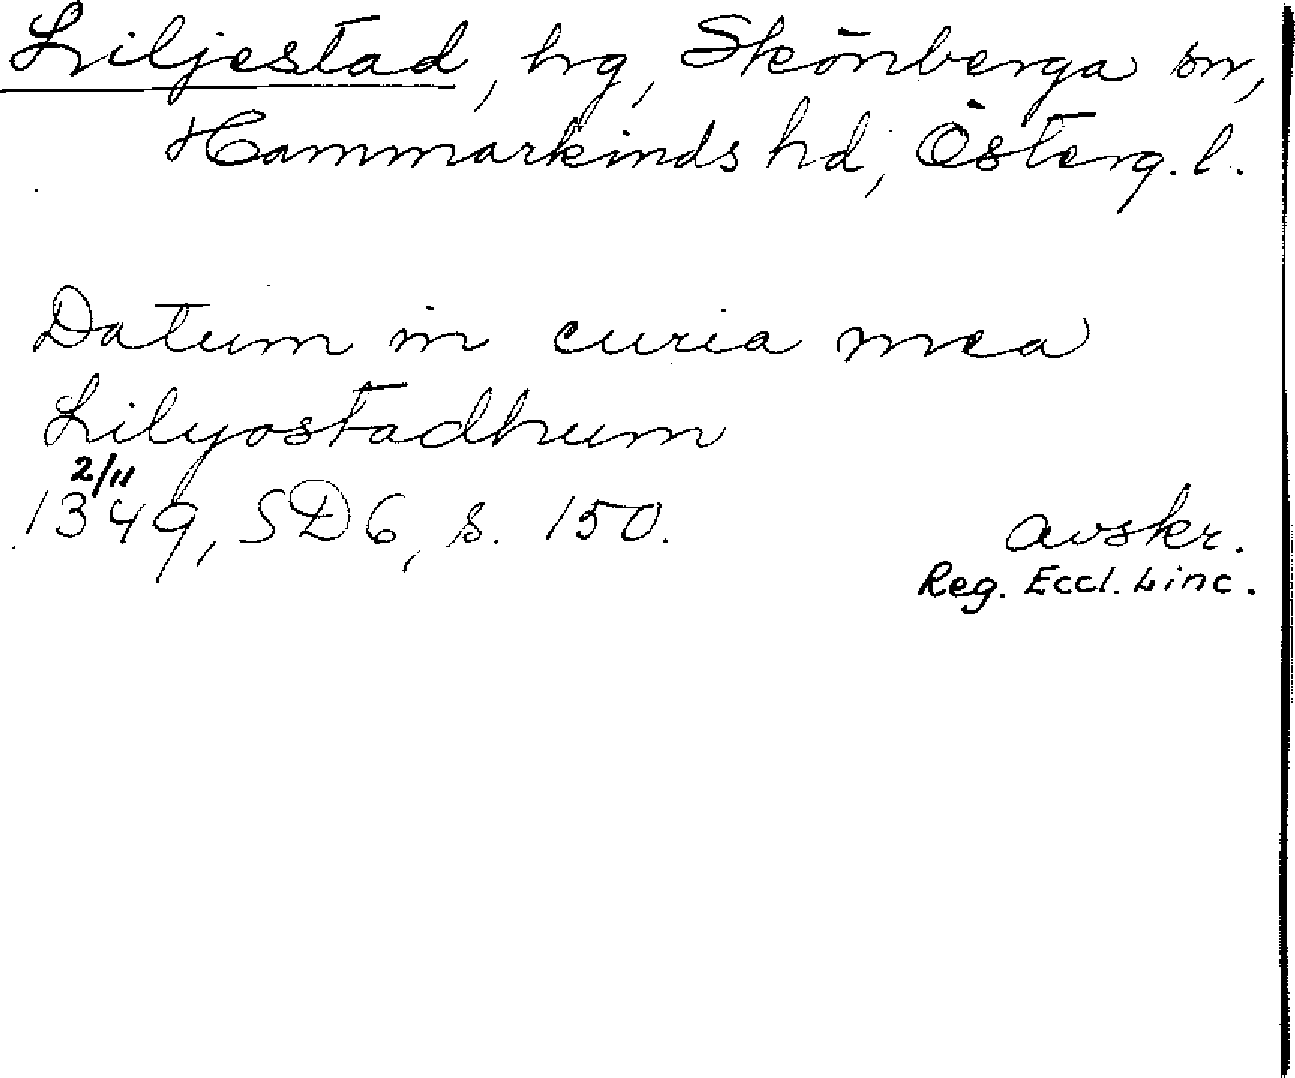 Liljestad, hg, Skönberga sn,
Hammarkinds hd, Österg. l.
Datum in curia mea
Lilyostadhum
2/11
1349, SD 6, s. 150.
avskr.
Reg. Eccl. Linc.